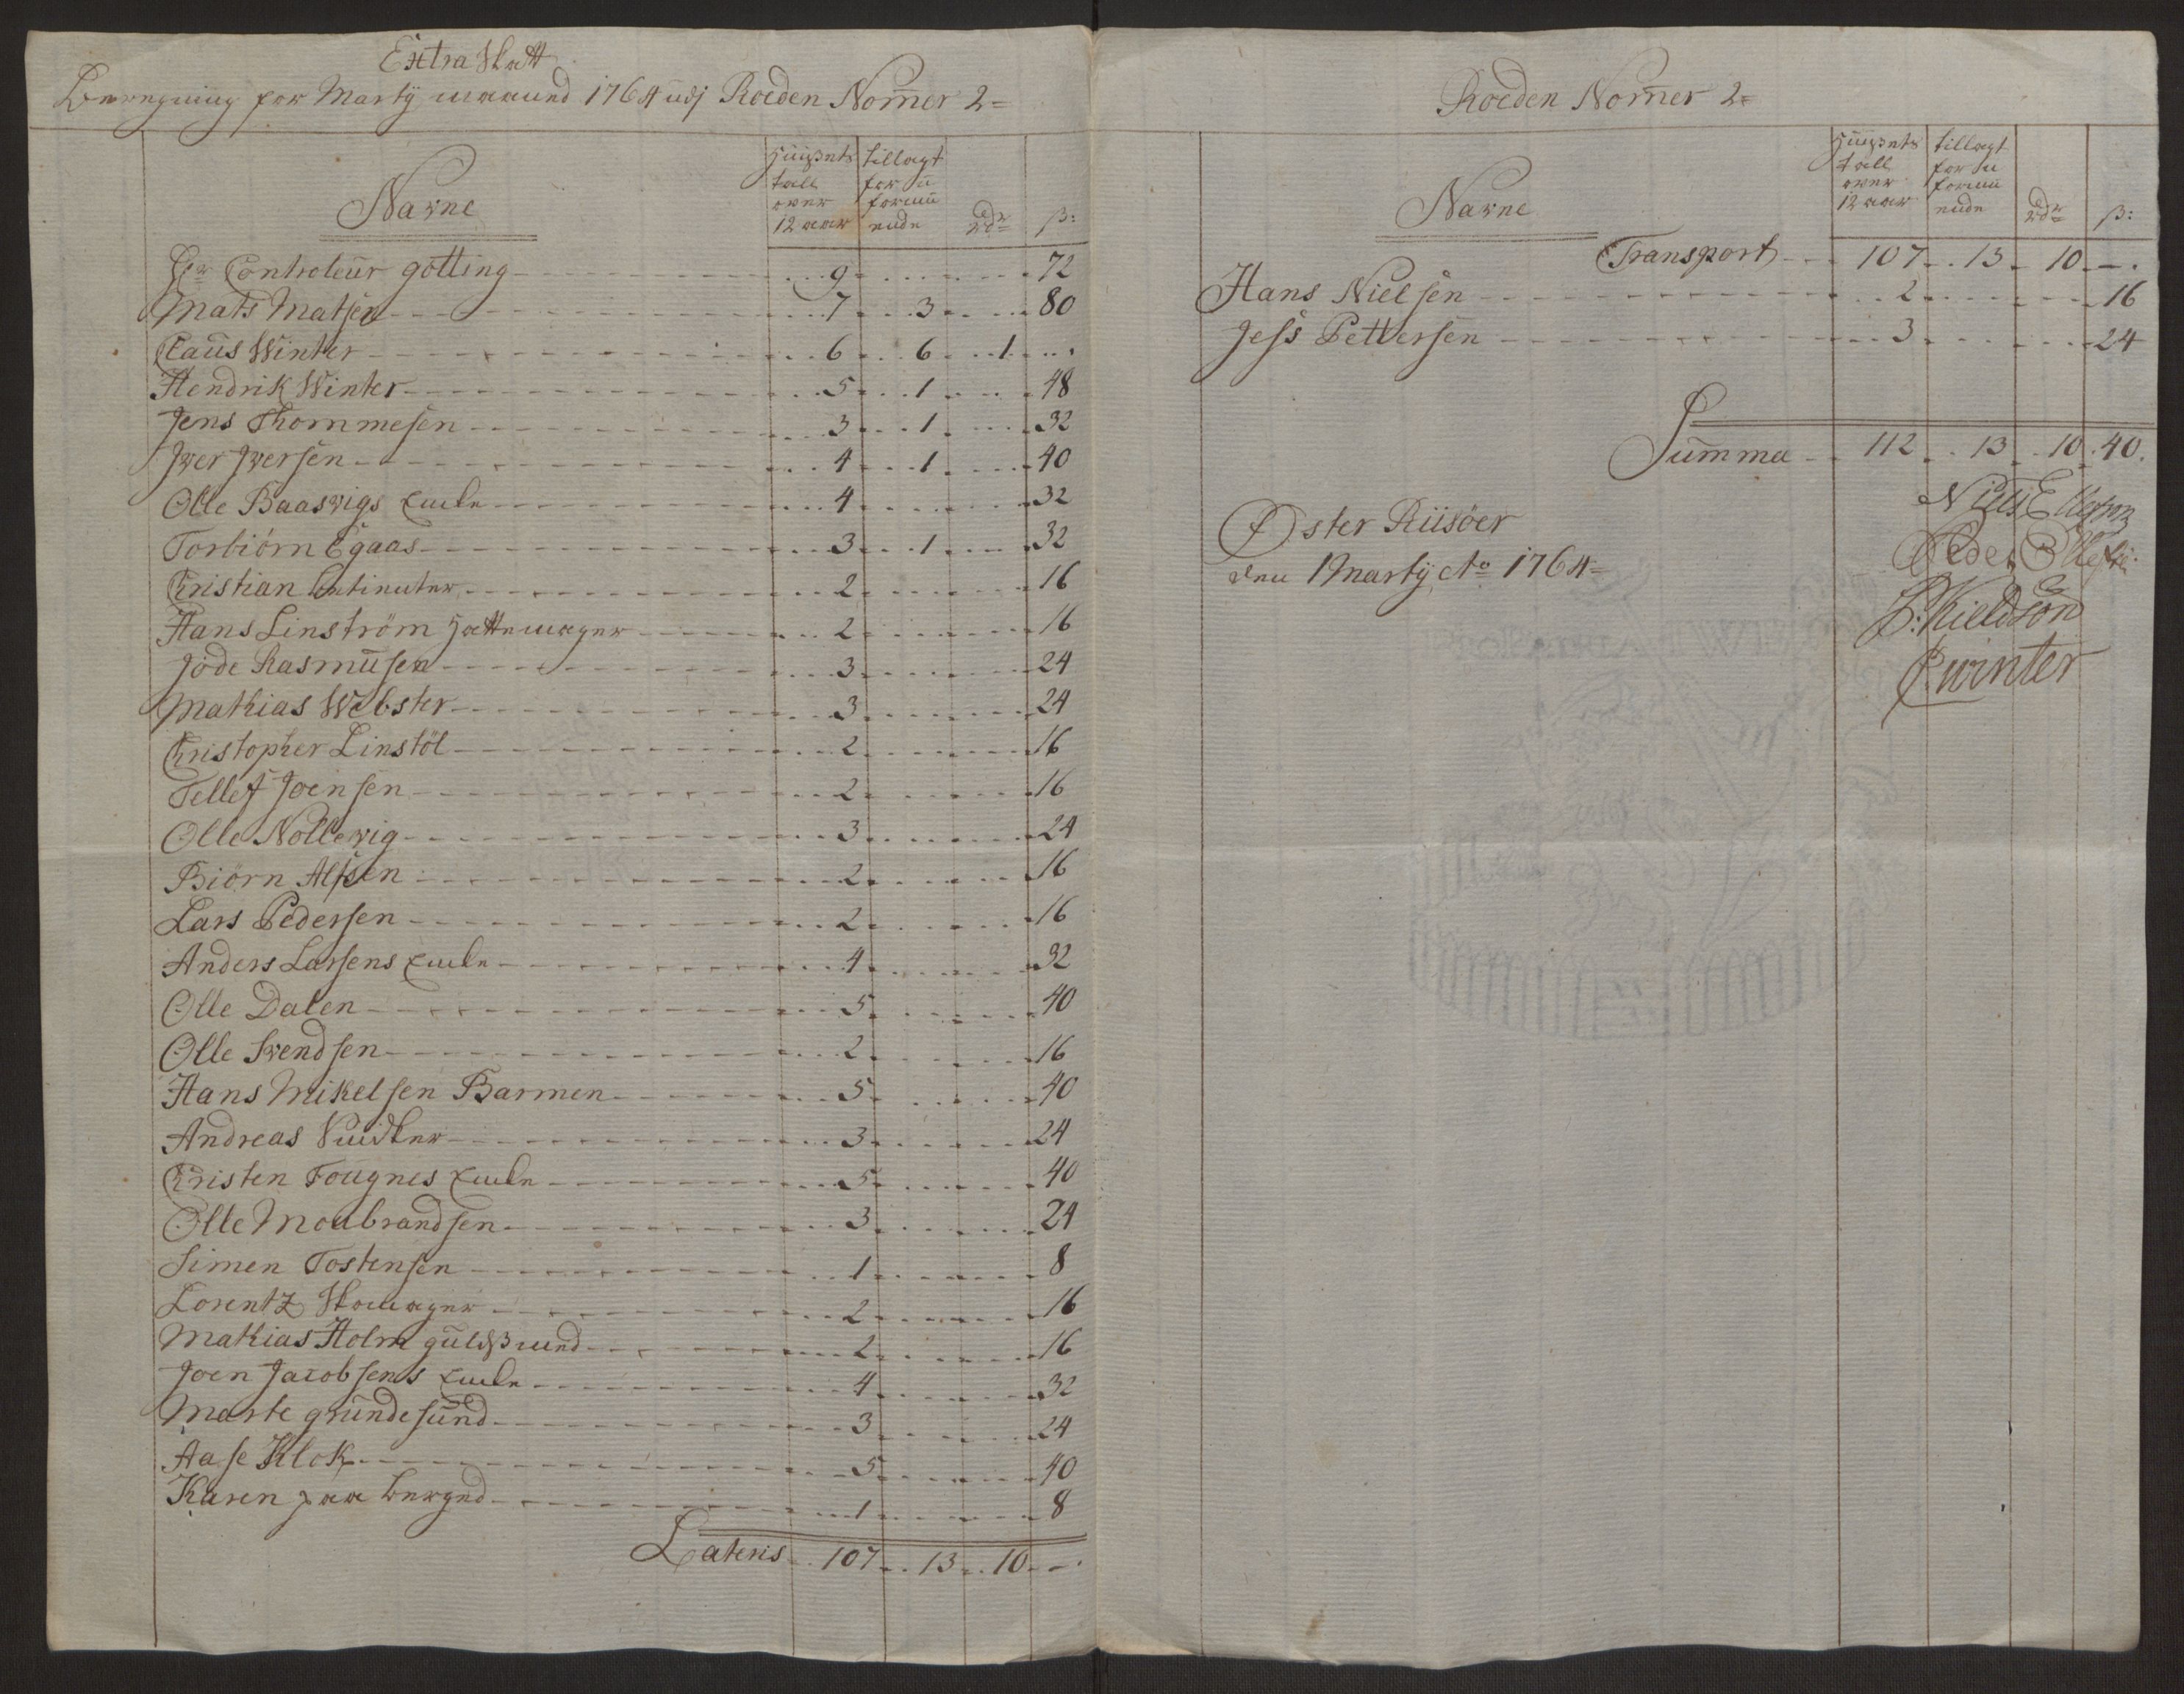 Extra Skatt
Beregning for Marty maaned 1764 udj Roeden Nom̄er 2=
Navne
Huusets tall over 12 aar
tillagt for u formuende
Rdr
ß:
Hr Controleur gotting 9 72
Mats Matsen 7 3 80
Claus Winter 6 6 1
Hendrik Winter 5 1 48
Jens Thommesen 3 1 32
Jver Jversen 4 1 40
Olle Baasvigs Encke 4 32
Torbiörn Egaas 3 1 32
Christian 2 16
Hans Linström Hattemager 2 16
Jöde Rasmusen 3 24
Mathias Webster 3 24
Christopher Linstöl 2 16
Tellef Joensen 2 16
Olle Nollevig 3 24
Biörn Alfsen 2 16
Lars Pedersen 2 16
Anders Larsens Encke 4 32
Olle Dalen 5 40
Olle Svendsen 2 16
Hans Mikelsen Barmen 5 40
Andreas 3 24
Christen Fougnes Encke 5 40
Olle Moubrandsen 3 24
Simen Tostensen 1 8
Lorentz Skomager 2 16
Mathias Holm guldsmed 2 16
Joen Jacobsens Encke 4 32
Marte grundesund 3 24
Aase Klok 5 40
Karen paa berged 1 8
Lateris 107 13 10 -
Roeden Nom̄er 2=
Navne
Huusets tall over 12 aar
tillagt for u formuende
Rdr
ß:
Transport 107 13 10 -
Hans Nielsen 2 16
Jess Pettersen 3 24
Sum̄ma 112 13 10 40.
Øster Riisöer
den 1 Marty Ao 1764=
Niels Ellefsen
Peder Ollefsen
P: Kieldsön
C: winter